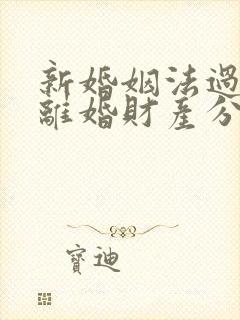 新婚姻法過
離婚財產分
寶迪